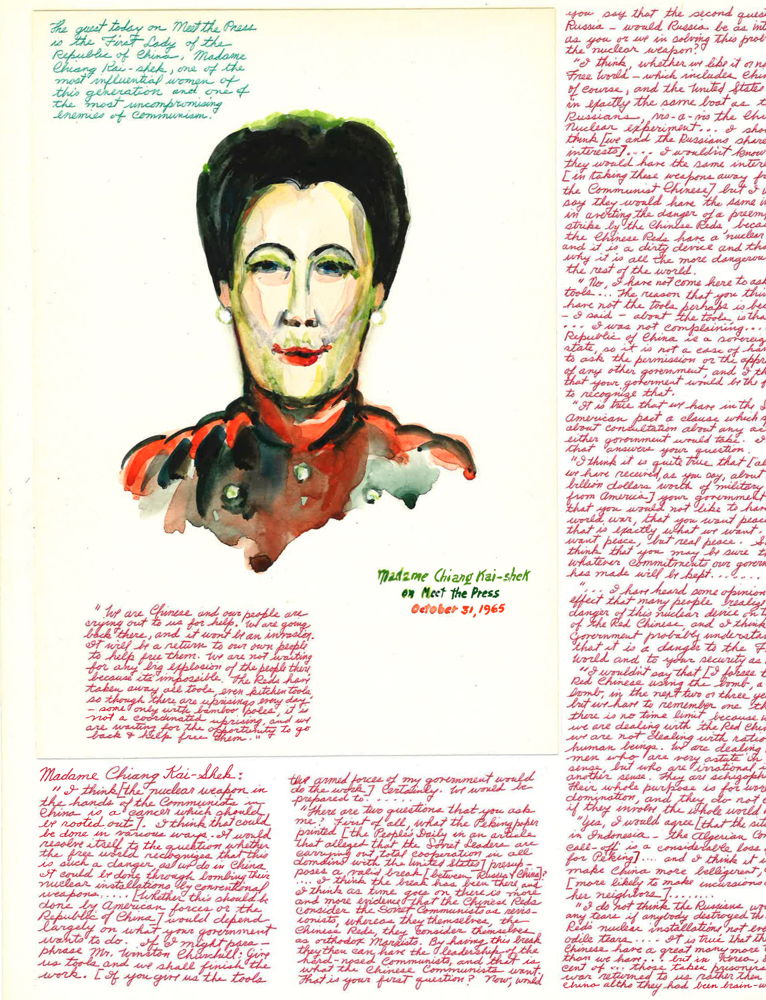 The guest today on Meet the Press
is the First Lady of the
Republic of China, Madame
Chiang Kai-shek, one of the
most influential women of
this generation and one of
the most uncompromising
enemies of Communism.
Madame Chiang Kai-shek
on Meet the Press
October 31, 1965
"We are Chinese and our people are
crying out to us for help. We are going
back there, and it won't be an invasion.
It will be a return to our own people
to help free them. We are not waiting
for any big explosion of the people there
because its impossible. The Reds have
taken away all tools, even kitchen tools,
so though there are uprisings every day
- some only with bamboo poles, it is
not a coordinated uprising, and we
are waiting for the opportunity to go
back & help free them."
Madame Chiang Kai-Shek:
"I think [the nuclear weapon in
the hands of the Communists in
China is a cancer which should
be rooted out]. I think that could
be done in various ways. It would
resolve itself to the question whether
the free world recognizes that this
is such a danger as we do in China.
It could be done through bombing their
nuclear installations by conventional
weapons.... [whether this should be
done by American forces or the
Republic of China] would depend
largely on what your government
wants to do. If I might para-
phrase Mr. Winston Churchill: Give
us tools and we shall finish the
work. [If you give us the tools
the armed forces of my government would
do the work] Certainly. We would be
prepared to........
"There are two questions that you ask
me. First of all, what the Peking paper
printed [the People's Daily in an article
that alleged that the Soviet leaders are
carrying out total cooperation in all
domains with the United States] presup-
poses a valid break [between Russia & China]?
.... I think the break has been there and
I think as time goes on there is more
and more evidence that the Chinese Reds
consider the Soviet Communists as revis-
ionist, whereas they themselves, the
Chinese Reds, they consider themselves
as orthodox Marxists. By having this break
they then can have the leadership of the
hard-nosed Communists, and that is
what the Chinese Communists want.
That is your first question? Now, would
you say that the second ques
Russia - would Russia be as int
as you or we in solving this prob
the nuclear weapon?
"I think, whether we like it or no
Free World - which includes Chin
of course, and the United States
in exactly the same boat as t
Russians, vis-a-vis the Chi
Nuclear experiment... I sho
think [we and the Russians share
interests].... I wouldn't know
they would have the same intere
[in taking these weapons away fr
the Communist Chinese] but I w
say they would have the same in
in averting the danger of a preem
strike by the Chinese Reds, becau
the Chinese Reds have a nuclear
and it is a dirty device and tha
why it is all the more dangerou
the rest of the world.
"No, I have not come here to ask
tools... The reason that you thin
have not the tools perhaps is bec
- I said - about the tools, is tha
... I was not complaining....
Republic of China is a sovereig
state, so it is not a case of hav
to ask the permission or the appr
of any other government, and I th
that your government would be the f
to recognize that.
"It is true that we have in the S
American pact a clause which s
about consultation about any ac
either government would take. I
that answers your question.
"I think it is quite true that [al
we have received, as you say, about
billion dollars worth of military
from America] your government
that you would not like to have
world war, that you want peac
that is exactly what we want.
want peace, but real peace. S
think that you may be sure t
whatever commitments our gover
has made will be kept.......
"... I have heard some opinion
effect that many people realize
danger of this nuclear device on t
of the Red Chinese, and I think
Government probably understan
that it is a danger to the F
World and to your security as
"I wouldn't say that [I foresee t
Red Chinese using the bomb, a
bomb, in the next two or three ye
but we have to remember one th
there is no time limit, because w
we are dealing with the Red Chin
we are not dealing with ratio
human beings. We are dealing
men who are very astute in
sense, but who are irrational i
another sense. They are schizoph
Their whole purpose is for wor
domination, and they do not c
if they involve the whole world
"Yes, I would agree [that the sit
in Indonesia - the Algerian Con
call-off is a considerable lose
for Peking].... and I think it i
make China more belligerent,
[more likely to make incursions a
her neighbors].......
"I do not think the Russians wo
any tears if anybody destroyed th
Reds nuclear installation, not eve
odile tears.... It is true that th
Chinese have a great many most
than we have... but in Korea,
cent of ... those taken prisoners
war returned to us rather than
China altho they had been brain-w